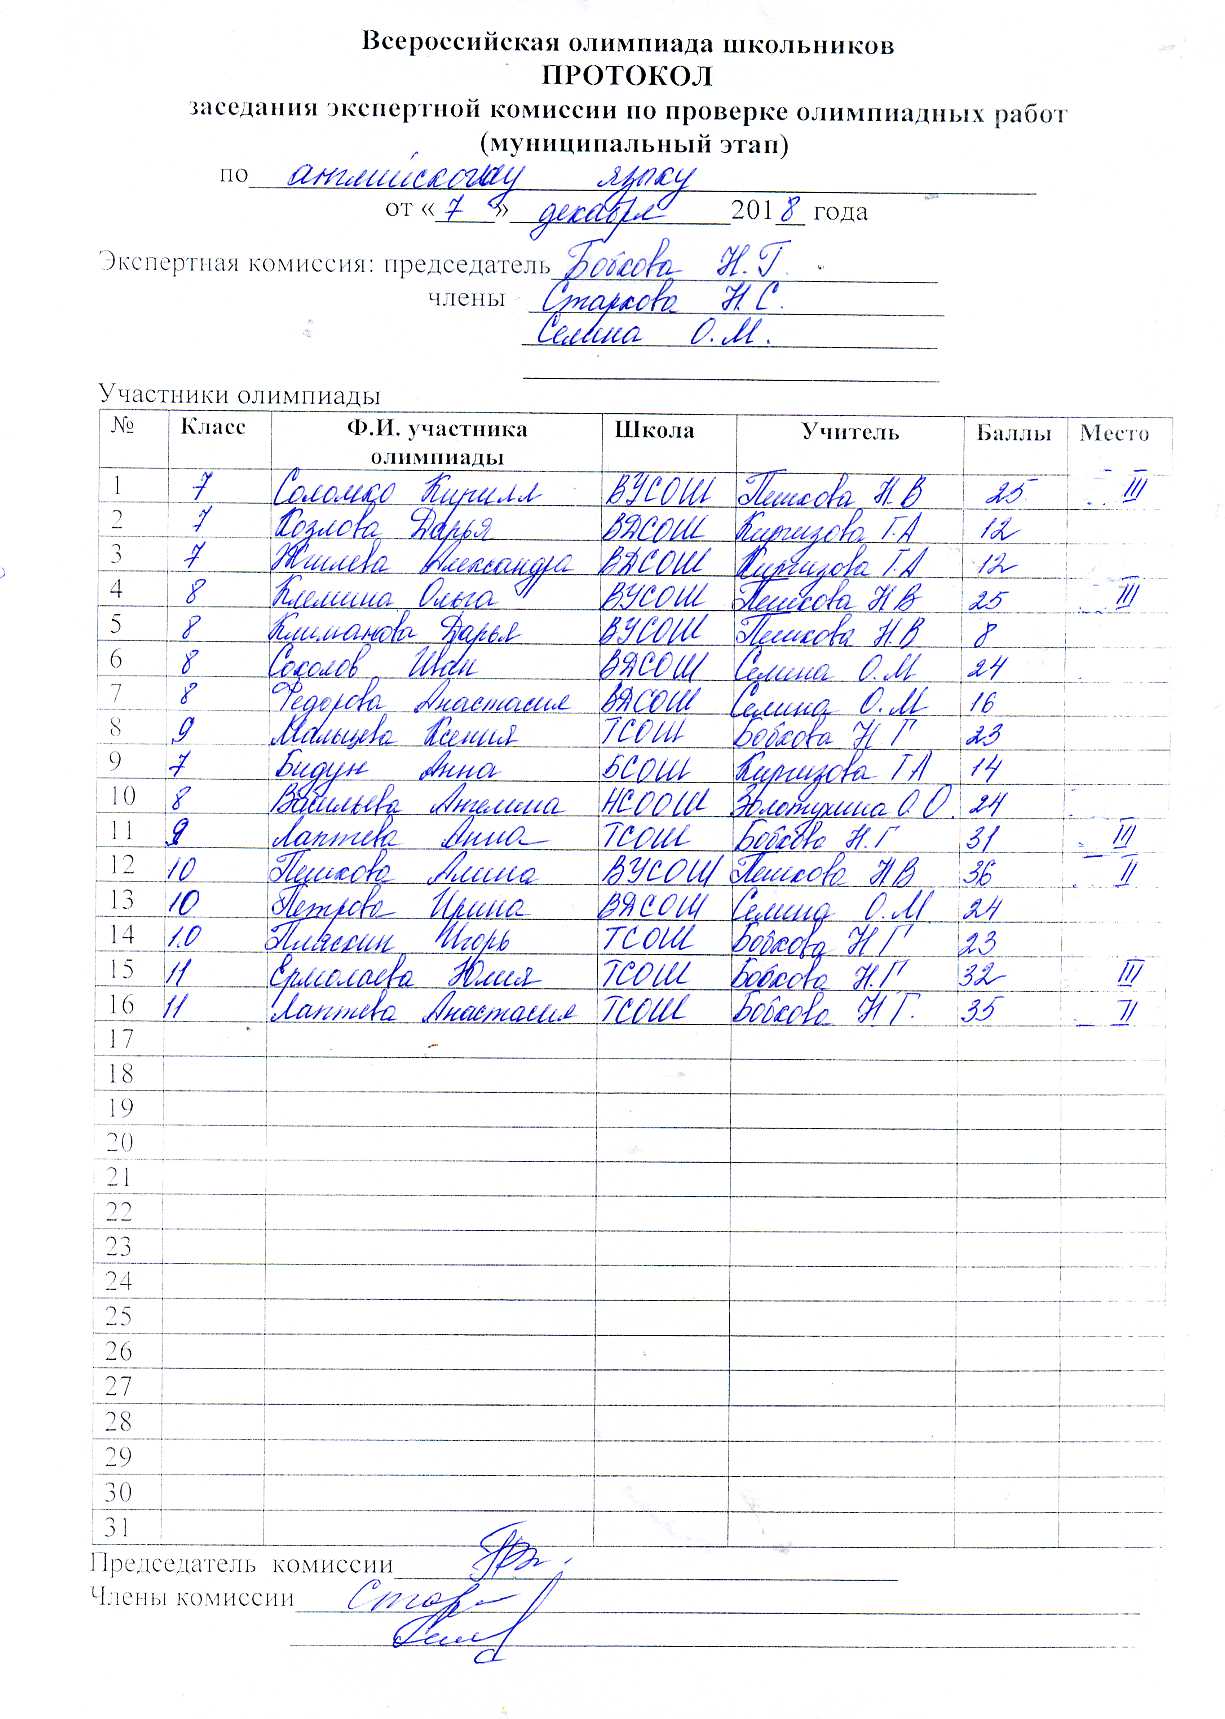 Всероссийская олимпиада школьников
ПРОТОКОЛ
заседания экспертной комиссии по проверке олимпиадных работ
(муниципальный этап)
по английскому языку
от « 7 » декабря 2018 года
Экспертная комиссия: председатель Бобкова Н.Г.
члены Старкова Н.С.
Селина О.М.
Участники олимпиады
№ Класс Ф.И. участника олимпиады Школа Учитель Баллы Место
1 7 Соломко Кирилл ВУСОШ Пешкова Н.В 25 III
2 7 Козлова Дарья ВДСОШ Киргизова Т.А 12
3 7 Жилева Александра ВДСОШ Киргизова Т.А 12
4 8 Клемина Ольга ВУСОШ Пешкова Н В 25 III
5 8 Климанова Дарья ВУСОШ Пешкова Н.В 8
6 8 Соколов Иван ВДСОШ Селина О.М 24
7 8 Федорова Анастасия ВДСОШ Селина О.М 16
8 9 Мальцева Ксения ТСОШ Бобкова Н Г 23
9 7 Бидун Анна БСОШ Киргизова Т А 14
10 8 Васильева Ангелина НСООШ Золотухина О.О. 24
11 9 Лаптева Анна ТСОШ Бобкова Н.Г 31 III
12 10 Пешкова Алина ВУСОШ Пешкова Н В 36 II
13 10 Петрова Ирина ВДСОШ Селина О.М 24
14 10 Пляскин Игорь ТСОШ Бобкова Н Г 23
15 11 Ермолаева Юлия ТСОШ Бобкова Н.Г 32 III
16 11 Лаптева Анастасия ТСОШ Бобкова Н Г. 35 II
17
18
19
20
21
22
23
24
25
26
27
28
29
30
31
Председатель комиссии
Члены комиссии